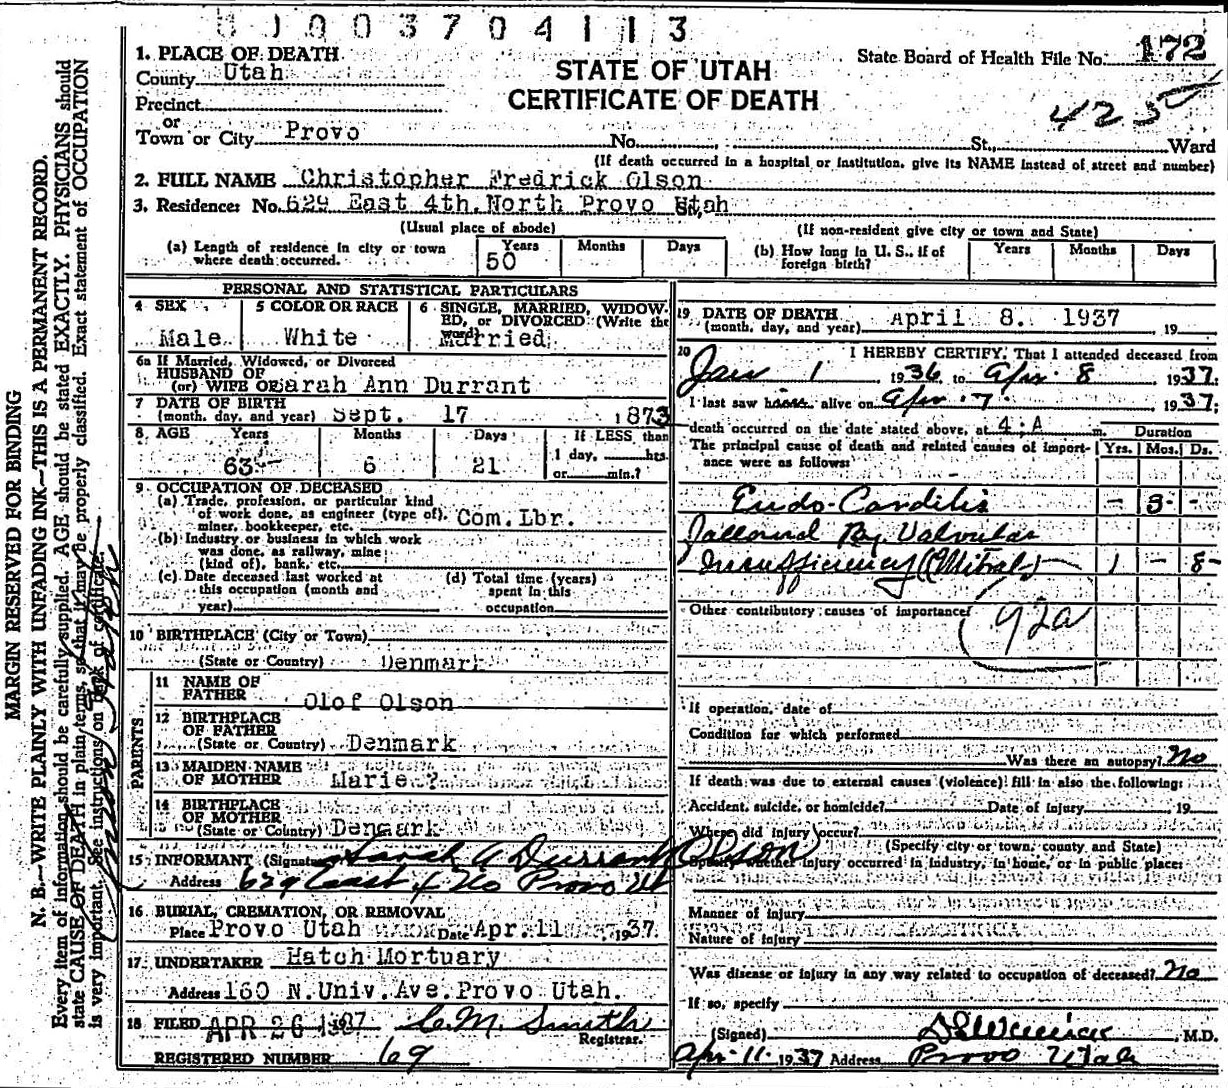 0003704113
1. PLACE OF DEATH
County Utah
STATE OF UTAH
CERTIFICATE OF DEATH
State Board of Health File No. 172
Precinct
or
Town or City Provo No. St., Ward
(If death occurred in a hospital or institution, give its NAME instead of street and number)
2. FULL NAME Christopher Fredrick Olson
3. Residence: No. 629 East 4th North Provo Utah
(Usual place of abode) (If non-resident give city or town and State)
(a) Length of residence in city or town where death occurred. Years 50 Months Days
(b) How long in U. S., if of foreign birth? Years Months Days
PERSONAL AND STATISTICAL PARTICULARS
4 SEX Male
5 COLOR OR RACE White
6 SINGLE, MARRIED, WIDOWED, or DIVORCED (Write the word) Married
6a If Married, Widowed, or Divorced
HUSBAND OF
(or) WIFE OF Sarah Ann Durrant
7 DATE OF BIRTH
(month, day, and year) Sept. 17 1873
8 AGE Years 63 Months 6 Days 21 If LESS than 1 day, hrs. or min.?
9 OCCUPATION OF DECEASED
(a) Trade, profession, or particular kind of work done, as engineer (type of), miner, bookkeeper, etc. Com. Lbr.
(b) Industry or business in which work was done, as railway, mine (kind of), bank, etc.
(c) Date deceased last worked at this occupation (month and year)
(d) Total time (years) spent in this occupation
10 BIRTHPLACE (City or Town)
(State or Country) Denmark
PARENTS
11 NAME OF FATHER Olof Olson
12 BIRTHPLACE OF FATHER
(State or Country) Denmark
13 MAIDEN NAME OF MOTHER Marie ?
14 BIRTHPLACE OF MOTHER
(State or Country) Denmark
15 INFORMANT (Signature) Sarah A Durrant Olson
Address 629 East 4 No Provo Ut
16 BURIAL, CREMATION, OR REMOVAL
Place Provo Utah Date Apr. 11 1937
17 UNDERTAKER Hatch Mortuary
Address 160 N. Univ. Ave. Provo Utah.
18 FILED APR 26 1937 C. M. Smith
Registrar.
REGISTERED NUMBER 69
19 DATE OF DEATH
(month, day, and year) April 8. 1937 19
20 I HEREBY CERTIFY, That I attended deceased from
Jan 1 1936 to Apr 8 1937.
I last saw h alive on Apr 7 1937;
death occurred on the date stated above, at 4:A m.
Duration
The principal cause of death and related causes of importance were as follows:
Yrs. Mos. Ds.
Endo-Carditis - 3 -
Followed By Valvular
Insufficiency (Mitral) 1 - 8 -
Other contributory causes of importance:
92a
If operation, date of
Condition for which performed
Was there an autopsy? No
If death was due to external causes (violence) fill in also the following:
Accident, suicide, or homicide? Date of injury 19
Where did injury occur?
(Specify city or town, county and State)
Specify whether injury occurred in industry, in home, or in public place:
Manner of injury
Nature of injury
Was disease or injury in any way related to occupation of deceased? No
If so, specify
(Signed) M.D.
Apr 11 1937 Address Provo Utah
MARGIN RESERVED FOR BINDING
N. B.—WRITE PLAINLY WITH UNFADING INK—THIS IS A PERMANENT RECORD.
Every item of information should be carefully supplied. AGE should be stated EXACTLY. PHYSICIANS should
state CAUSE OF DEATH in plain terms, so that it may be properly classified. Exact statement of OCCUPATION
is very important. See instructions on back of certificate.